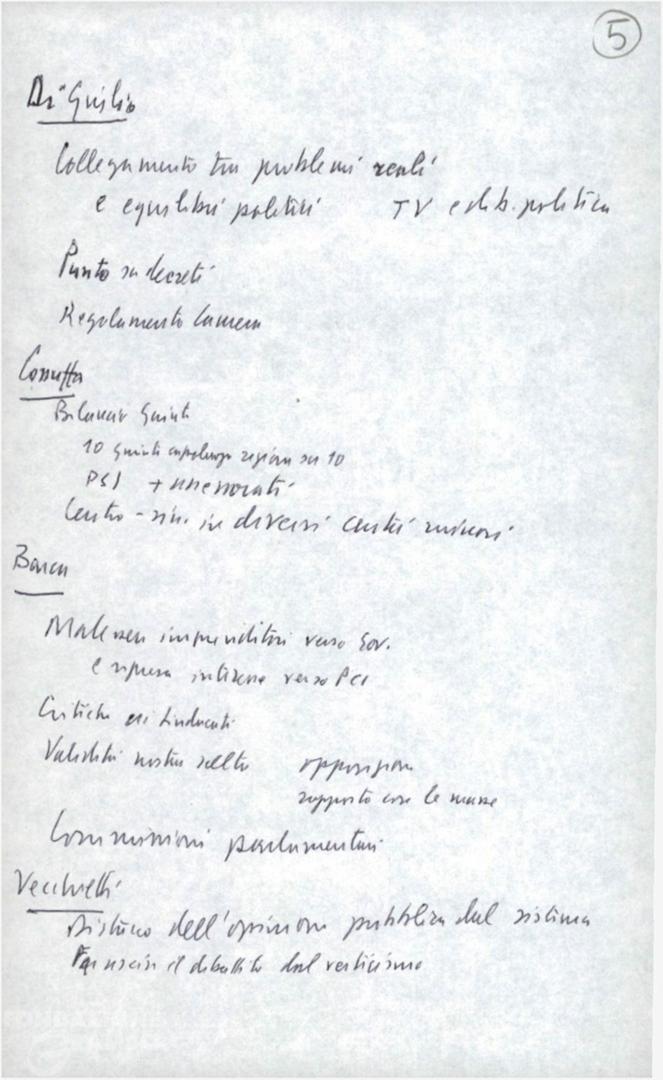 5
Di Giulio
Collegamento tra problemi reali
e equilibri politici TV e dib. politica
Punto su decreti
Regolamento Camera
Cossutta
Bilancio Giunte
10 giunte capoluogo regioni su 10
PSI +
Centro-sin. in diversi centri minori
Barca
Malessere imprenditori verso Gov.
e ripresa interesse verso PCI
Critiche ai sindacati
Validità nostra scelta opposizione
rapporto con le masse
Commissioni parlamentari
Vecchietti
Distacco dell'opinione pubblica dal sistema
Far uscire il dibattito dal verticismo